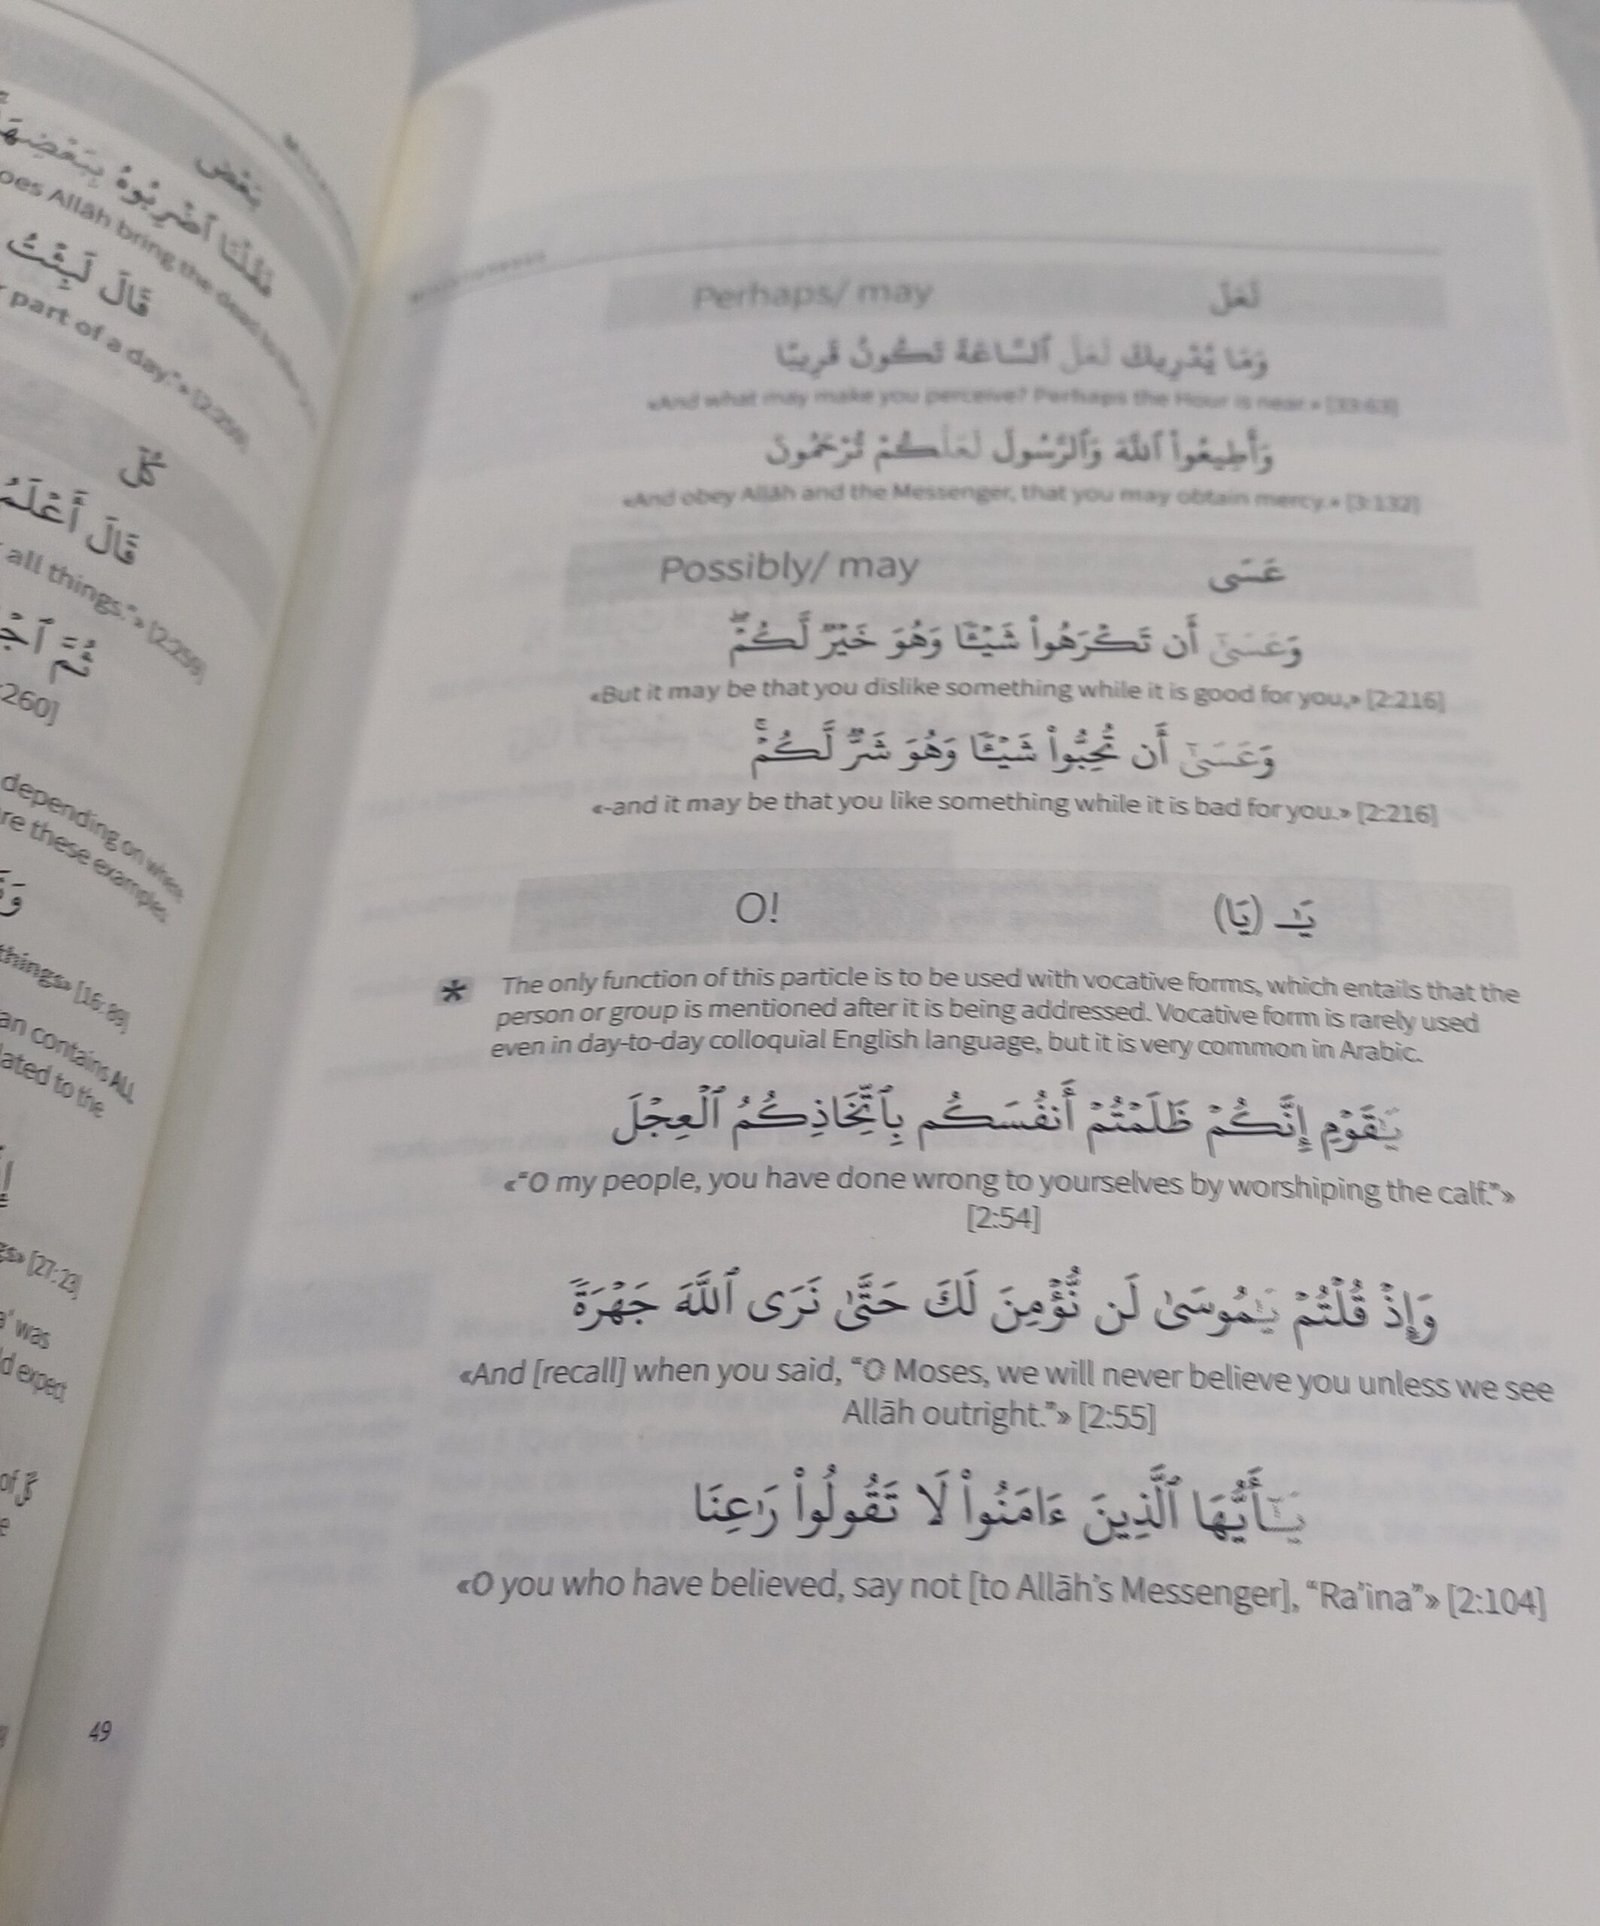 بَعْض
فَقُلْنَا ٱضْرِبُوهُ بِبَعْضِهَا
oes Allāh bring the dead to
قَالَ لَبِثْتُ
part of a day."» [2:259]
كُلّ
قَالَ أَعْلَمُ
all things."» [2:259]
ثُمَّ ٱجْ
:260]
depending on when
re these examples
things» [16: 89]
an contains ALL
lated to the
gs» [27:23]
a' was
ld expect
of كُلّ
49
Perhaps/ may لَعَلَّ
وَمَا يُدْرِيكَ لَعَلَّ ٱلسَّاعَةَ تَكُونُ قَرِيبًا
«And what may make you perceive? Perhaps the Hour is near.» [33:63]
وَأَطِيعُوا۟ ٱللَّهَ وَٱلرَّسُولَ لَعَلَّكُمْ تُرْحَمُونَ
«And obey Allāh and the Messenger, that you may obtain mercy.» [3:132]
Possibly/ may عَسَى
وَعَسَىٰٓ أَن تَكْرَهُوا۟ شَيْـًٔا وَهُوَ خَيْرٌ لَّكُمْ ۖ
«But it may be that you dislike something while it is good for you,» [2:216]
وَعَسَىٰٓ أَن تُحِبُّوا۟ شَيْـًٔا وَهُوَ شَرٌّ لَّكُمْ ۚ
«-and it may be that you like something while it is bad for you.» [2:216]
O! يَـٰـ (يَا)
* The only function of this particle is to be used with vocative forms, which entails that the
person or group is mentioned after it is being addressed. Vocative form is rarely used
even in day-to-day colloquial English language, but it is very common in Arabic.
يَـٰقَوْمِ إِنَّكُمْ ظَلَمْتُمْ أَنفُسَكُم بِٱتِّخَاذِكُمُ ٱلْعِجْلَ
«“O my people, you have done wrong to yourselves by worshiping the calf.”»
[2:54]
وَإِذْ قُلْتُمْ يَـٰمُوسَىٰ لَن نُّؤْمِنَ لَكَ حَتَّىٰ نَرَى ٱللَّهَ جَهْرَةً
«And [recall] when you said, “O Moses, we will never believe you unless we see
Allāh outright.”» [2:55]
يَـٰٓأَيُّهَا ٱلَّذِينَ ءَامَنُوا۟ لَا تَقُولُوا۟ رَٰعِنَا
«O you who have believed, say not [to Allāh’s Messenger], “Ra’ina”» [2:104]